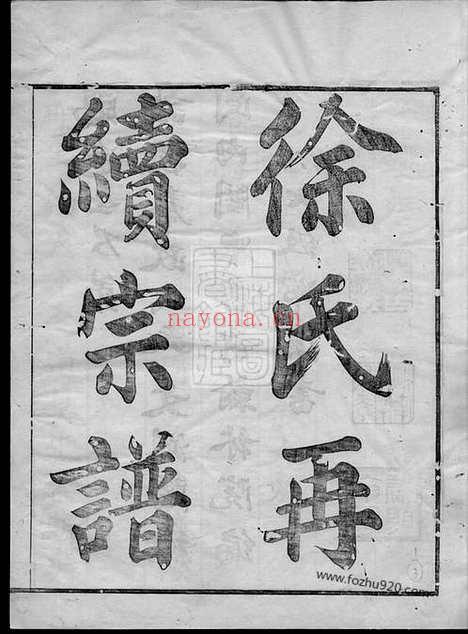 徐氏再
續宗譜
nayona.cn
www.fozhu920.com